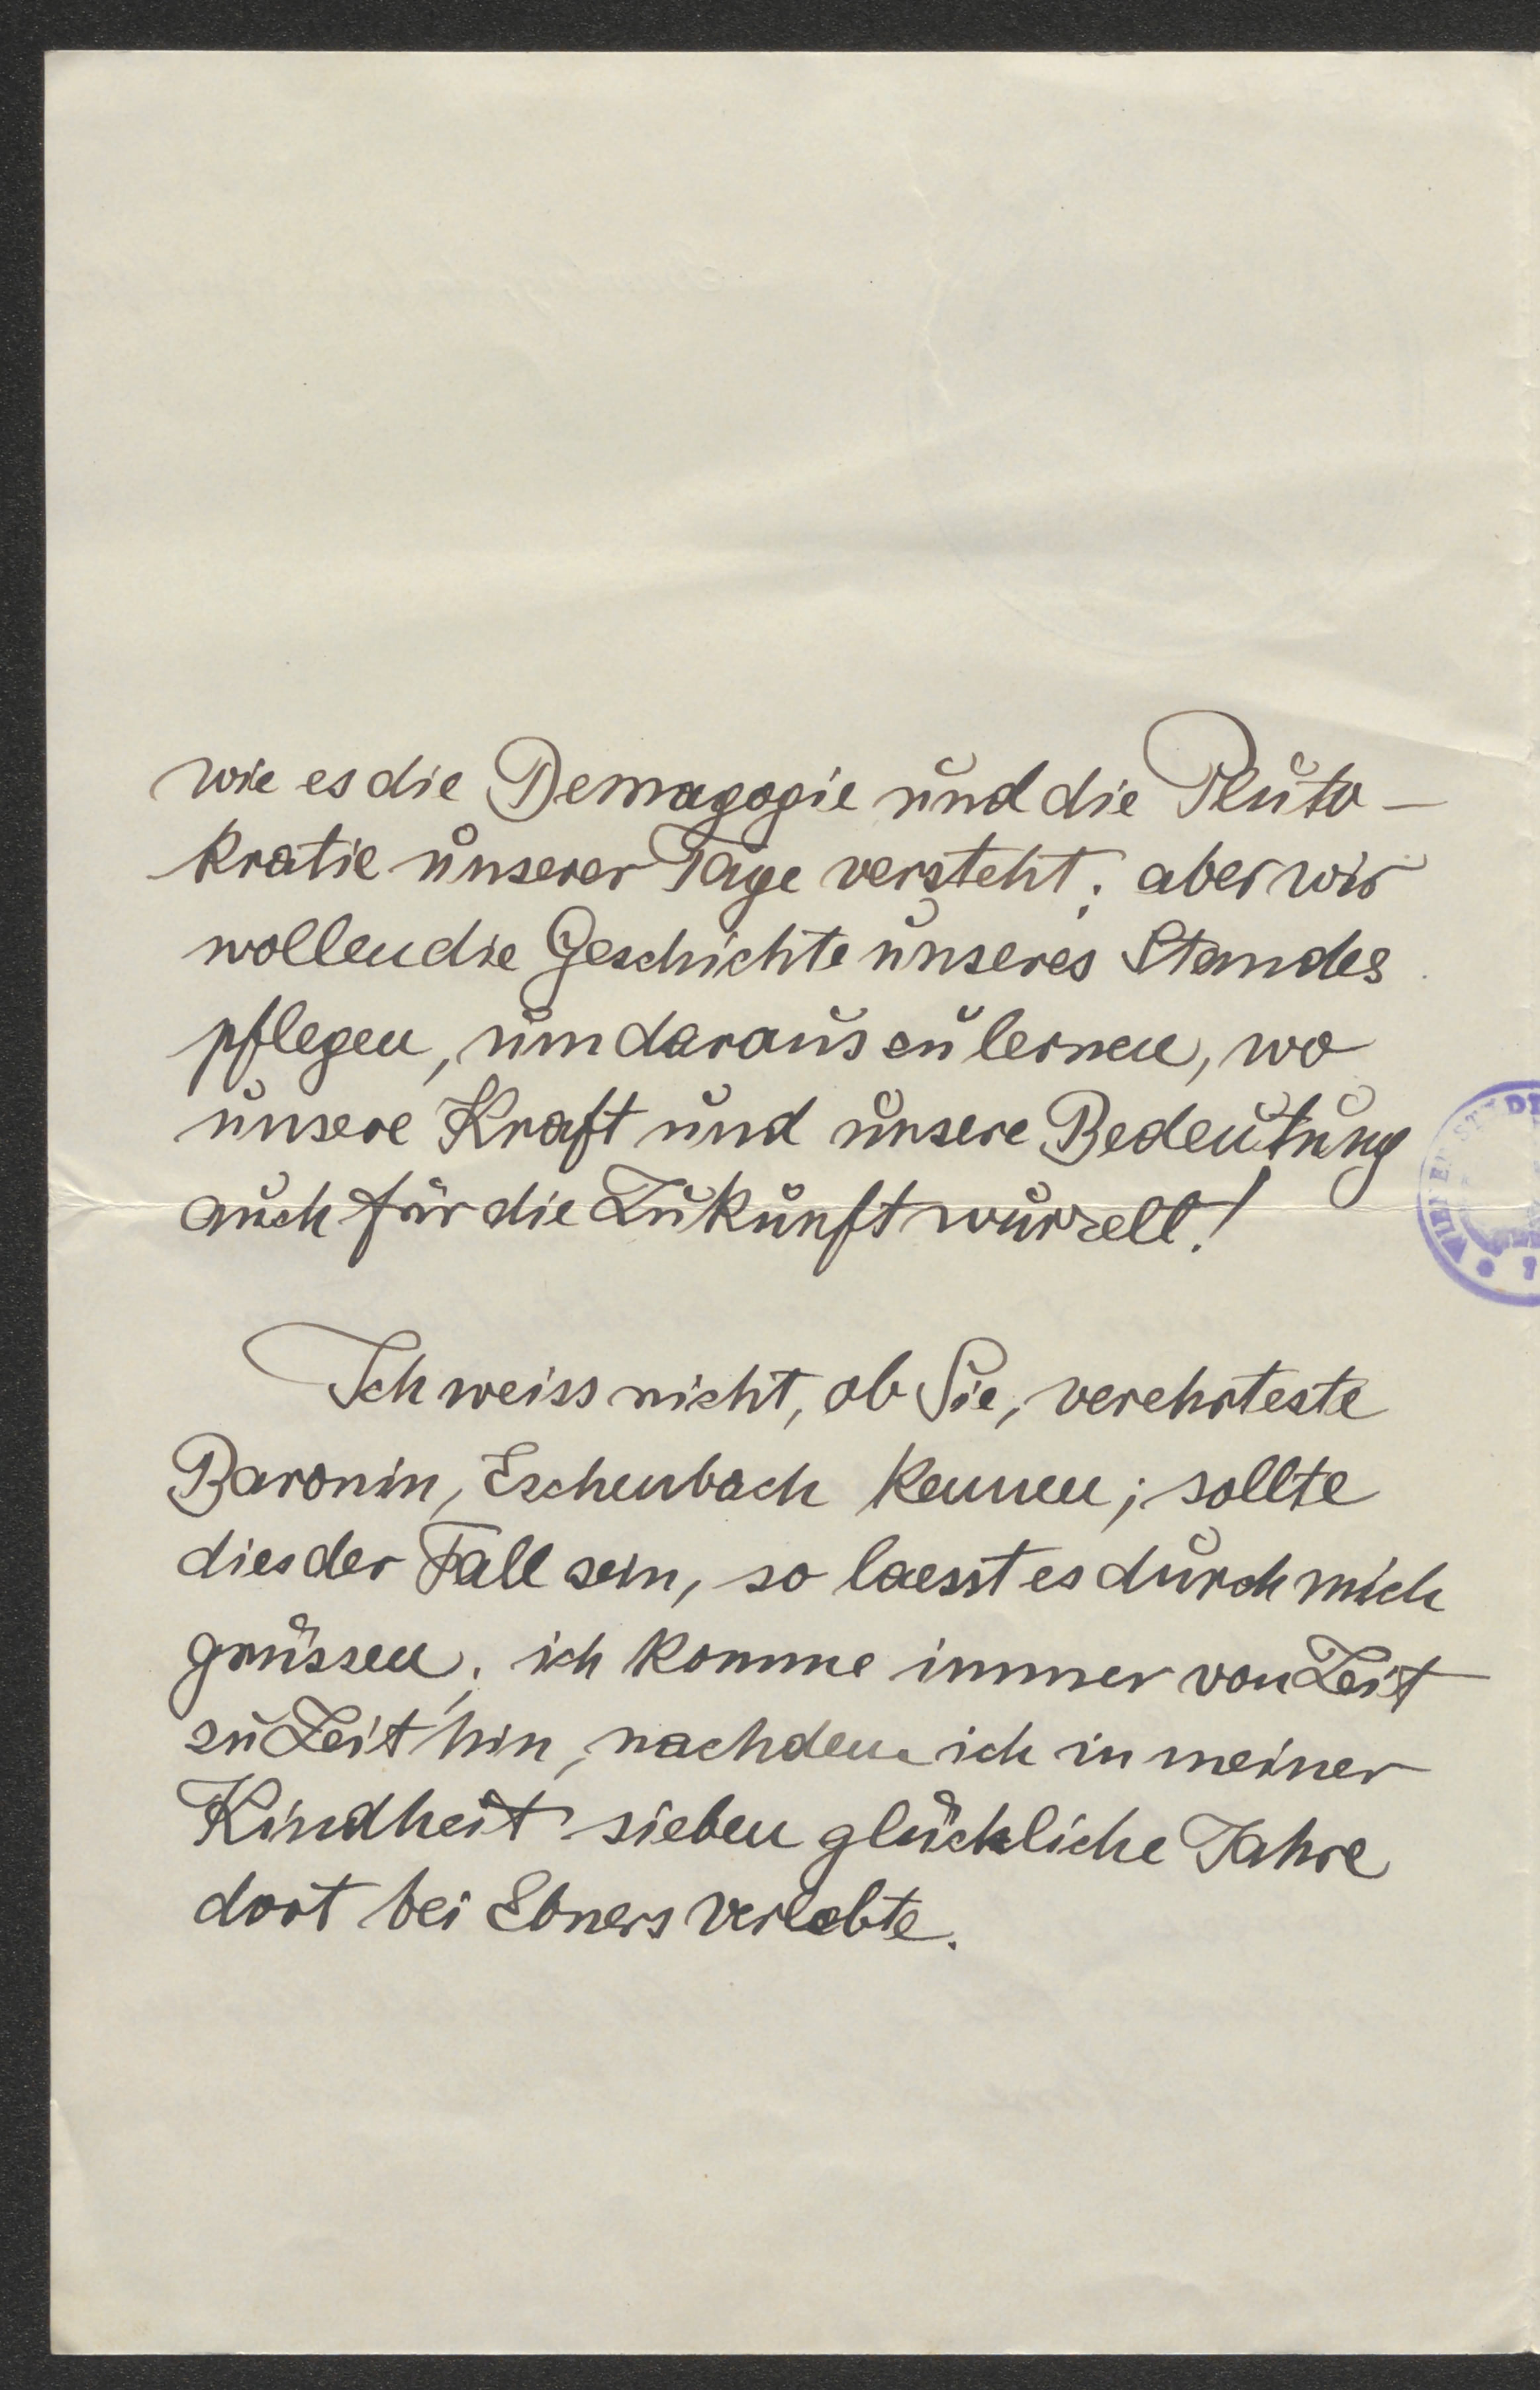 wie es die Demagogie und die Pluto-
kratie unserer Tage versteht; aber wir
wollen die Geschichte unseres Standes
pflegen, um daraus zu lernen, wo
unsere Kraft und unsere Bedeutung
auch für die Zukunft wurzelt!
Ich weiss nicht, ob Sie, verehrteste
Baronin, Eschenbach kennen; sollte
dies der Fall sein, so laesst es durch mich
grüssen; ich komme immer von Zeit
zu Zeit hin, nachdem ich in meiner
Kindheit sieben glückliche Jahre
dort bei Ebners verlebte.